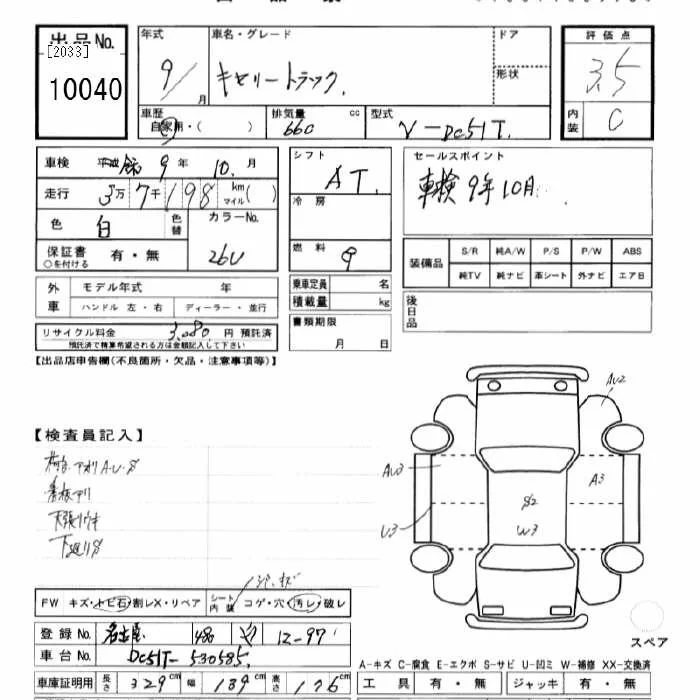 出品No.
[2033]
10040
年式
9/月
車名・グレード
キャリートラック
ドア
形状
評価点
3.5
内装
C
車歴
自家用・( )
排気量 cc
660
型式
V-DC51T.
車検 平成 9 年 10. 月
走行 3万 7千 198 km マイル( )
色 白 色替
カラーNo.
26U
保証書 ○を付ける 有・無
シフト
AT.
冷房
燃料
セールスポイント
車検 9年10月
装備品
S/R 純A/W P/S P/W ABS
純TV 純ナビ 革シート 外ナビ エアB
外車
モデル年式 年
ハンドル 左・右 ディーラー・並行
乗車定員 名
積載量 kg
後日品
リサイクル料金 3,080 円 預託済
預託済で精算希望される方は金額記入して下さい
書類期限
月 日
【出品店申告欄(不良箇所・欠品・注意事項等)】
AU2
【検査員記入】
AU3
A3
U3
S2
W3
荷台 アオリ A・U・S
看板アリ
天張りウキ
下廻りS
FW キズ・トビ石・割レX・リペア
シート内装 コゲ・穴・汚レ・破レ
登録No. 名古屋 480 12-97
車台No. DC51T-530585.
スペア
A-キズ C-腐食 E-エクボ S-サビ U-凹ミ W-補修 XX-交換済
車庫証明用 長さ 329 cm 幅 139 cm 高さ 176 cm
工具 有・無 ジャッキ 有・無